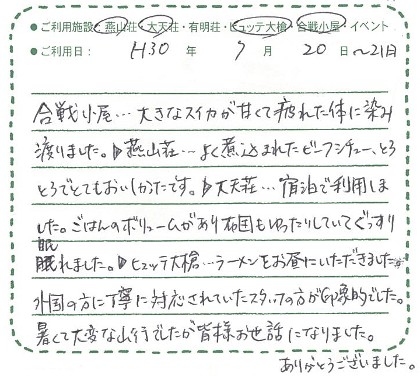 ●ご利用施設・燕山荘・大天荘・有明荘・ヒュッテ大槍・合戦小屋・イベント
●ご利用日: H30 年 7 月 20 日〜21日
合戦小屋…大きなスイカが甘くて疲れた体に染み
渡りました。▷燕山荘…よく煮込まれたビーフシチュー、とろ
とろでとてもおいしかったです。▷大天荘…宿泊で利用しま
した。ごはんのボリュームがあり布団もゆったりしていてぐっすり
眠
眠れました。▷ヒュッテ大槍…ラーメンをお昼にいただきました
外国の方に丁寧に対応されていたスタッフの方が印象的でした。
暑くて大変な山行でしたが皆様お世話になりました。
ありがとうございました。